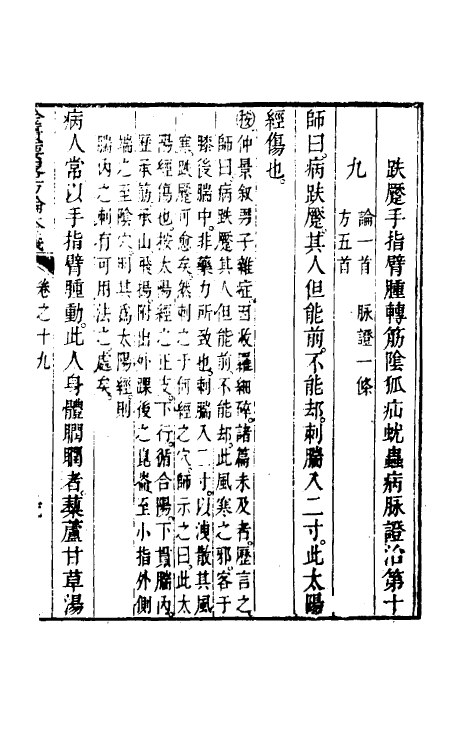 趺蹷手指臂腫轉筋陰狐疝蚘蟲病脉證治第十
九
論一首　脉證一條
方五首
師曰病趺蹷其人但能前不能却刺腨入二寸此太陽
經傷也
按仲景叙男子雜症因收羅細碎諸篇未及者歷言之
師曰病趺蹷其人但能前不能却此風寒之邪客于
膝後腨中非藥力所致也刺腨入二寸以洩散其風
寒趺蹷可愈矣然刺之于何經之穴師示之曰此太
陽經傷也按太陽經之正支下行循合陽下貫腨內
歷承筋承山飛揚附出外踝後之崑崙至小指外側
端之至陰穴則其爲太陽經則
腨內之刺有可用法之處矣
病人常以手指臂腫動此人身體瞤瞤者藜蘆甘草湯
卷之十九